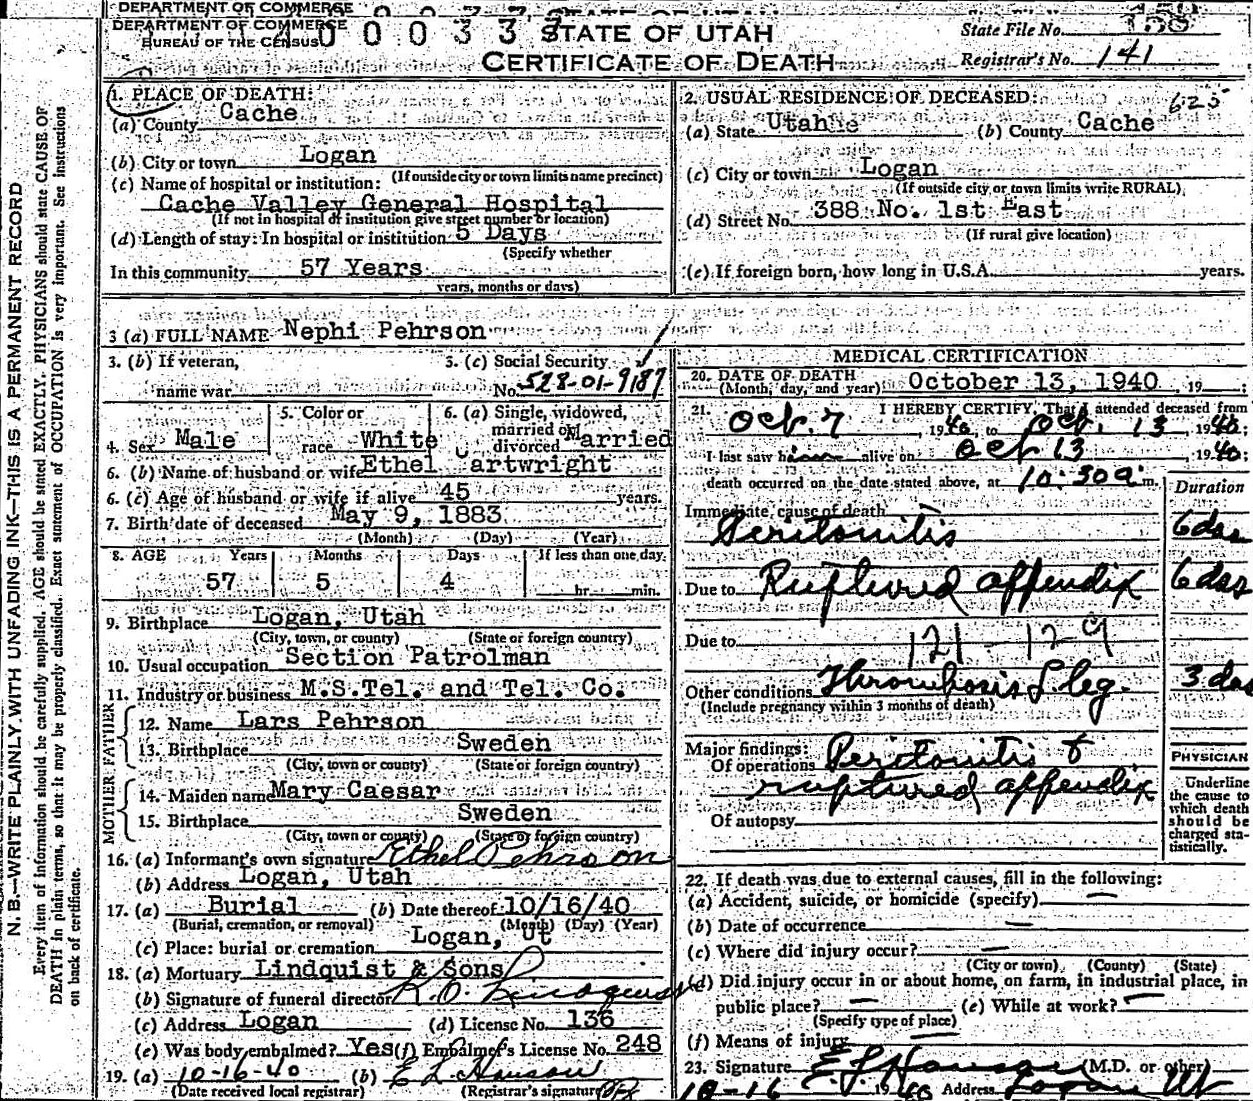 DEPARTMENT OF COMMERCE
DEPARTMENT OF COMMERCE
BUREAU OF THE CENSUS
0 0 0 3 3
STATE OF UTAH
CERTIFICATE OF DEATH
State File No. 158
Registrar's No. 141
N. B.—WRITE PLAINLY WITH UNFADING INK—THIS IS A PERMANENT RECORD
Every item of information should be carefully supplied. AGE should be stated EXACTLY. PHYSICIANS should state CAUSE OF
DEATH in plain terms, so that it may be properly classified. Exact statement of OCCUPATION is very important. See Instructions
on back of certificate.
1. PLACE OF DEATH:
(a) County Cache
(b) City or town Logan
(If outside city or town limits name precinct)
(c) Name of hospital or institution:
Cache Valley General Hospital
(If not in hospital or institution give street number or location)
(d) Length of stay: In hospital or institution 5 Days
(Specify whether
In this community 57 Years
years, months or days)
2. USUAL RESIDENCE OF DECEASED: 625
(a) State Utah (b) County Cache
(c) City or town Logan
(If outside city or town limits write RURAL)
(d) Street No. 388 No. 1st East
(If rural give location)
(e) If foreign born, how long in U.S.A. years.
3 (a) FULL NAME Nephi Pehrson
3. (b) If veteran,
name war
3. (c) Social Security
No. 528-01-9187
4. Sex Male
5. Color or
race White
6. (a) Single, widowed,
married or
divorced Married
6. (b) Name of husband or wife Ethel Cartwright
6. (c) Age of husband or wife if alive 45 years.
7. Birth date of deceased May 9, 1883
(Month) (Day) (Year)
8. AGE Years Months Days If less than one day
57 5 4 hr. min.
9. Birthplace Logan, Utah
(City, town, or county) (State or foreign country)
10. Usual occupation Section Patrolman
11. Industry or business M.S.Tel. and Tel. Co.
FATHER
12. Name Lars Pehrson
13. Birthplace Sweden
(City, town, or county) (State or foreign country)
MOTHER
14. Maiden name Mary Caesar
15. Birthplace Sweden
(City, town or county) (State or foreign country)
16. (a) Informant's own signature Ethel Pehrson
(b) Address Logan, Utah
17. (a) Burial (b) Date thereof 10/16/40
(Burial, cremation, or removal) (Month) (Day) (Year)
(c) Place: burial or cremation Logan, Ut
18. (a) Mortuary Lindquist & Sons
(b) Signature of funeral director R. O. Lindquist
(c) Address Logan (d) License No. 136
(e) Was body embalmed? Yes (f) Embalmer's License No. 248
19. (a) 10-16-40 (b) E L Hanson
(Date received local registrar) (Registrar's signature)
MEDICAL CERTIFICATION
20. DATE OF DEATH
(Month, day, and year) October 13, 1940, 19 ;
21. I HEREBY CERTIFY, That I attended deceased from
Oct. 7, 1940, to Oct. 13 1940;
I last saw him alive on Oct 13, 1940;
death occurred on the date stated above, at 10:30 a m.
Duration
Immediate cause of death
Peritonitis 6 das
Due to Ruptured appendix 6 das
Due to 121 - 129
Other conditions Thrombosis L leg. 3 das
(Include pregnancy within 3 months of death)
Major findings:
Of operations Peritonitis &
ruptured appendix
Of autopsy
PHYSICIAN
Underline
the cause to
which death
should be
charged sta-
tistically.
22. If death was due to external causes, fill in the following:
(a) Accident, suicide, or homicide (specify) —
(b) Date of occurrence —
(c) Where did injury occur? —
(City or town) (County) (State)
(d) Did injury occur in or about home, on farm, in industrial place, in
public place? — (e) While at work? —
(Specify type of place)
(f) Means of injury
23. Signature E. L. Hanson (M.D. or other)
10-16 1940 Address Logan Ut